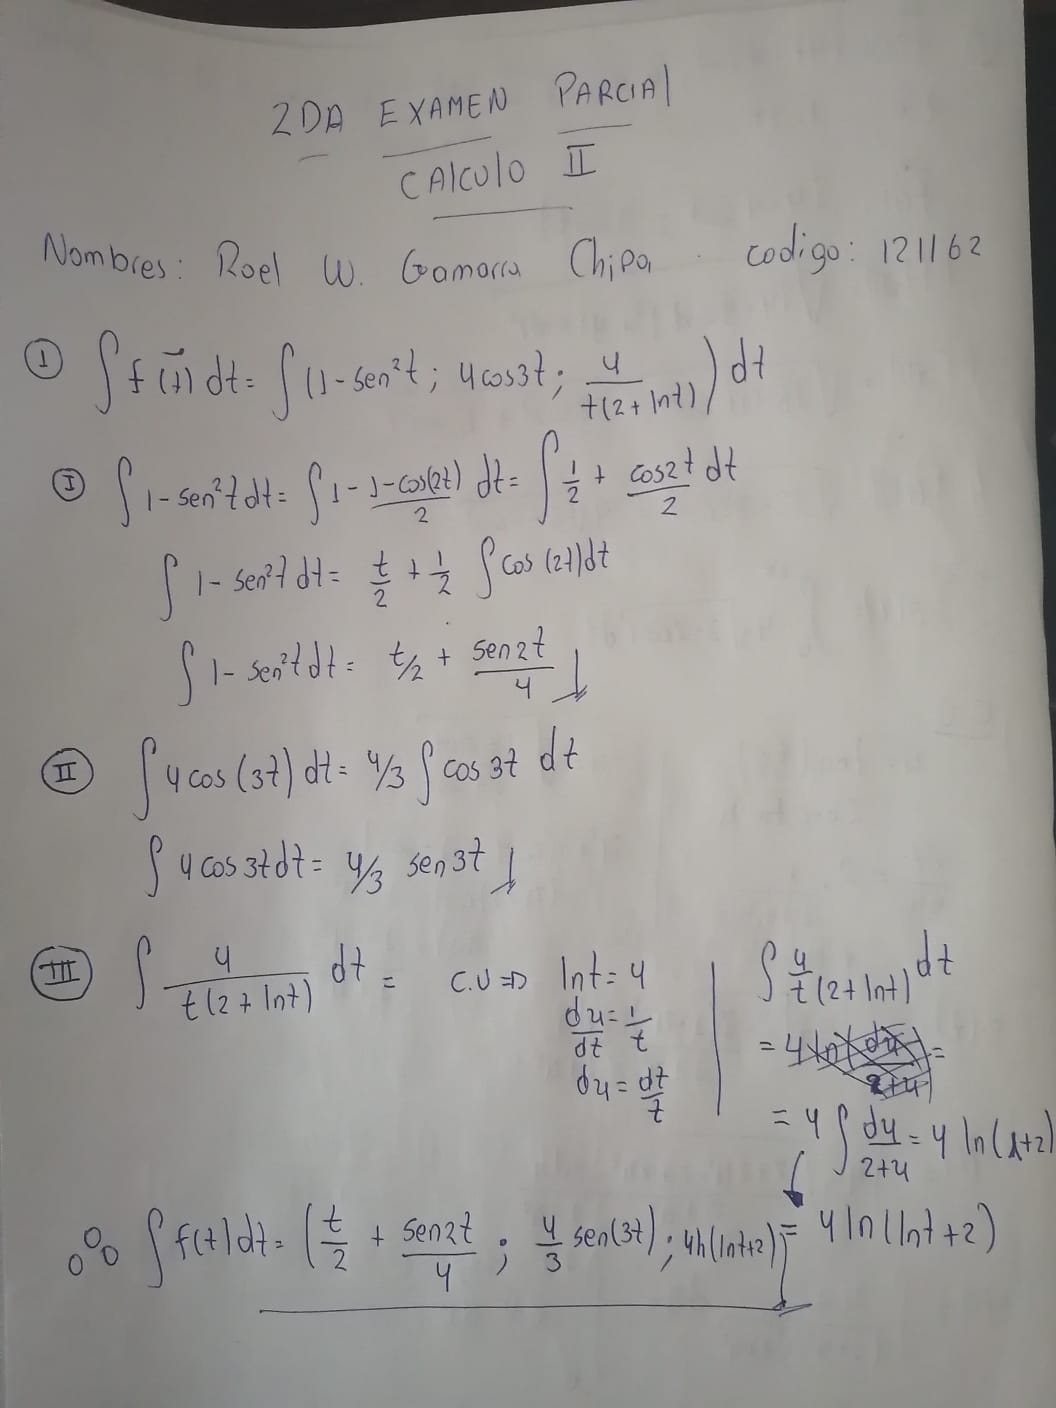 2DA EXAMEN PARCIAL
CALCULO II
Nombres: Roel W. Gamarra Chipa codigo: 121162
① ∫ f(t) dt = ∫ (1 - sen²t ; 4cos3t ; 4/(t(2+lnt))) dt
Ⓘ ∫ 1-sen²t dt = ∫ 1 - 1-cos(2t)/2 dt = ∫ 1/2 + cos2t/2 dt
∫ 1-sen²t dt = t/2 + 1/2 ∫ cos(2t)dt
∫ 1-sen²t dt = t/2 + sen2t/4
Ⅱ ∫ 4cos(3t) dt = 4/3 ∫ cos 3t dt
∫ 4cos3tdt = 4/3 sen3t
Ⅲ ∫ 4/(t(2+lnt)) dt = C.U ⇒ lnt = u
du/dt = 1/t
du = dt/t
∫ 4/t(2+lnt) dt
= 4 ∫ du/(2+u) = 4 ln(u+2)
= 4ln(lnt+2)
∴ ∫ f(t)dt = (t/2 + sen2t/4 ; 4/3 sen(3t) ; 4ln(lnt+2))